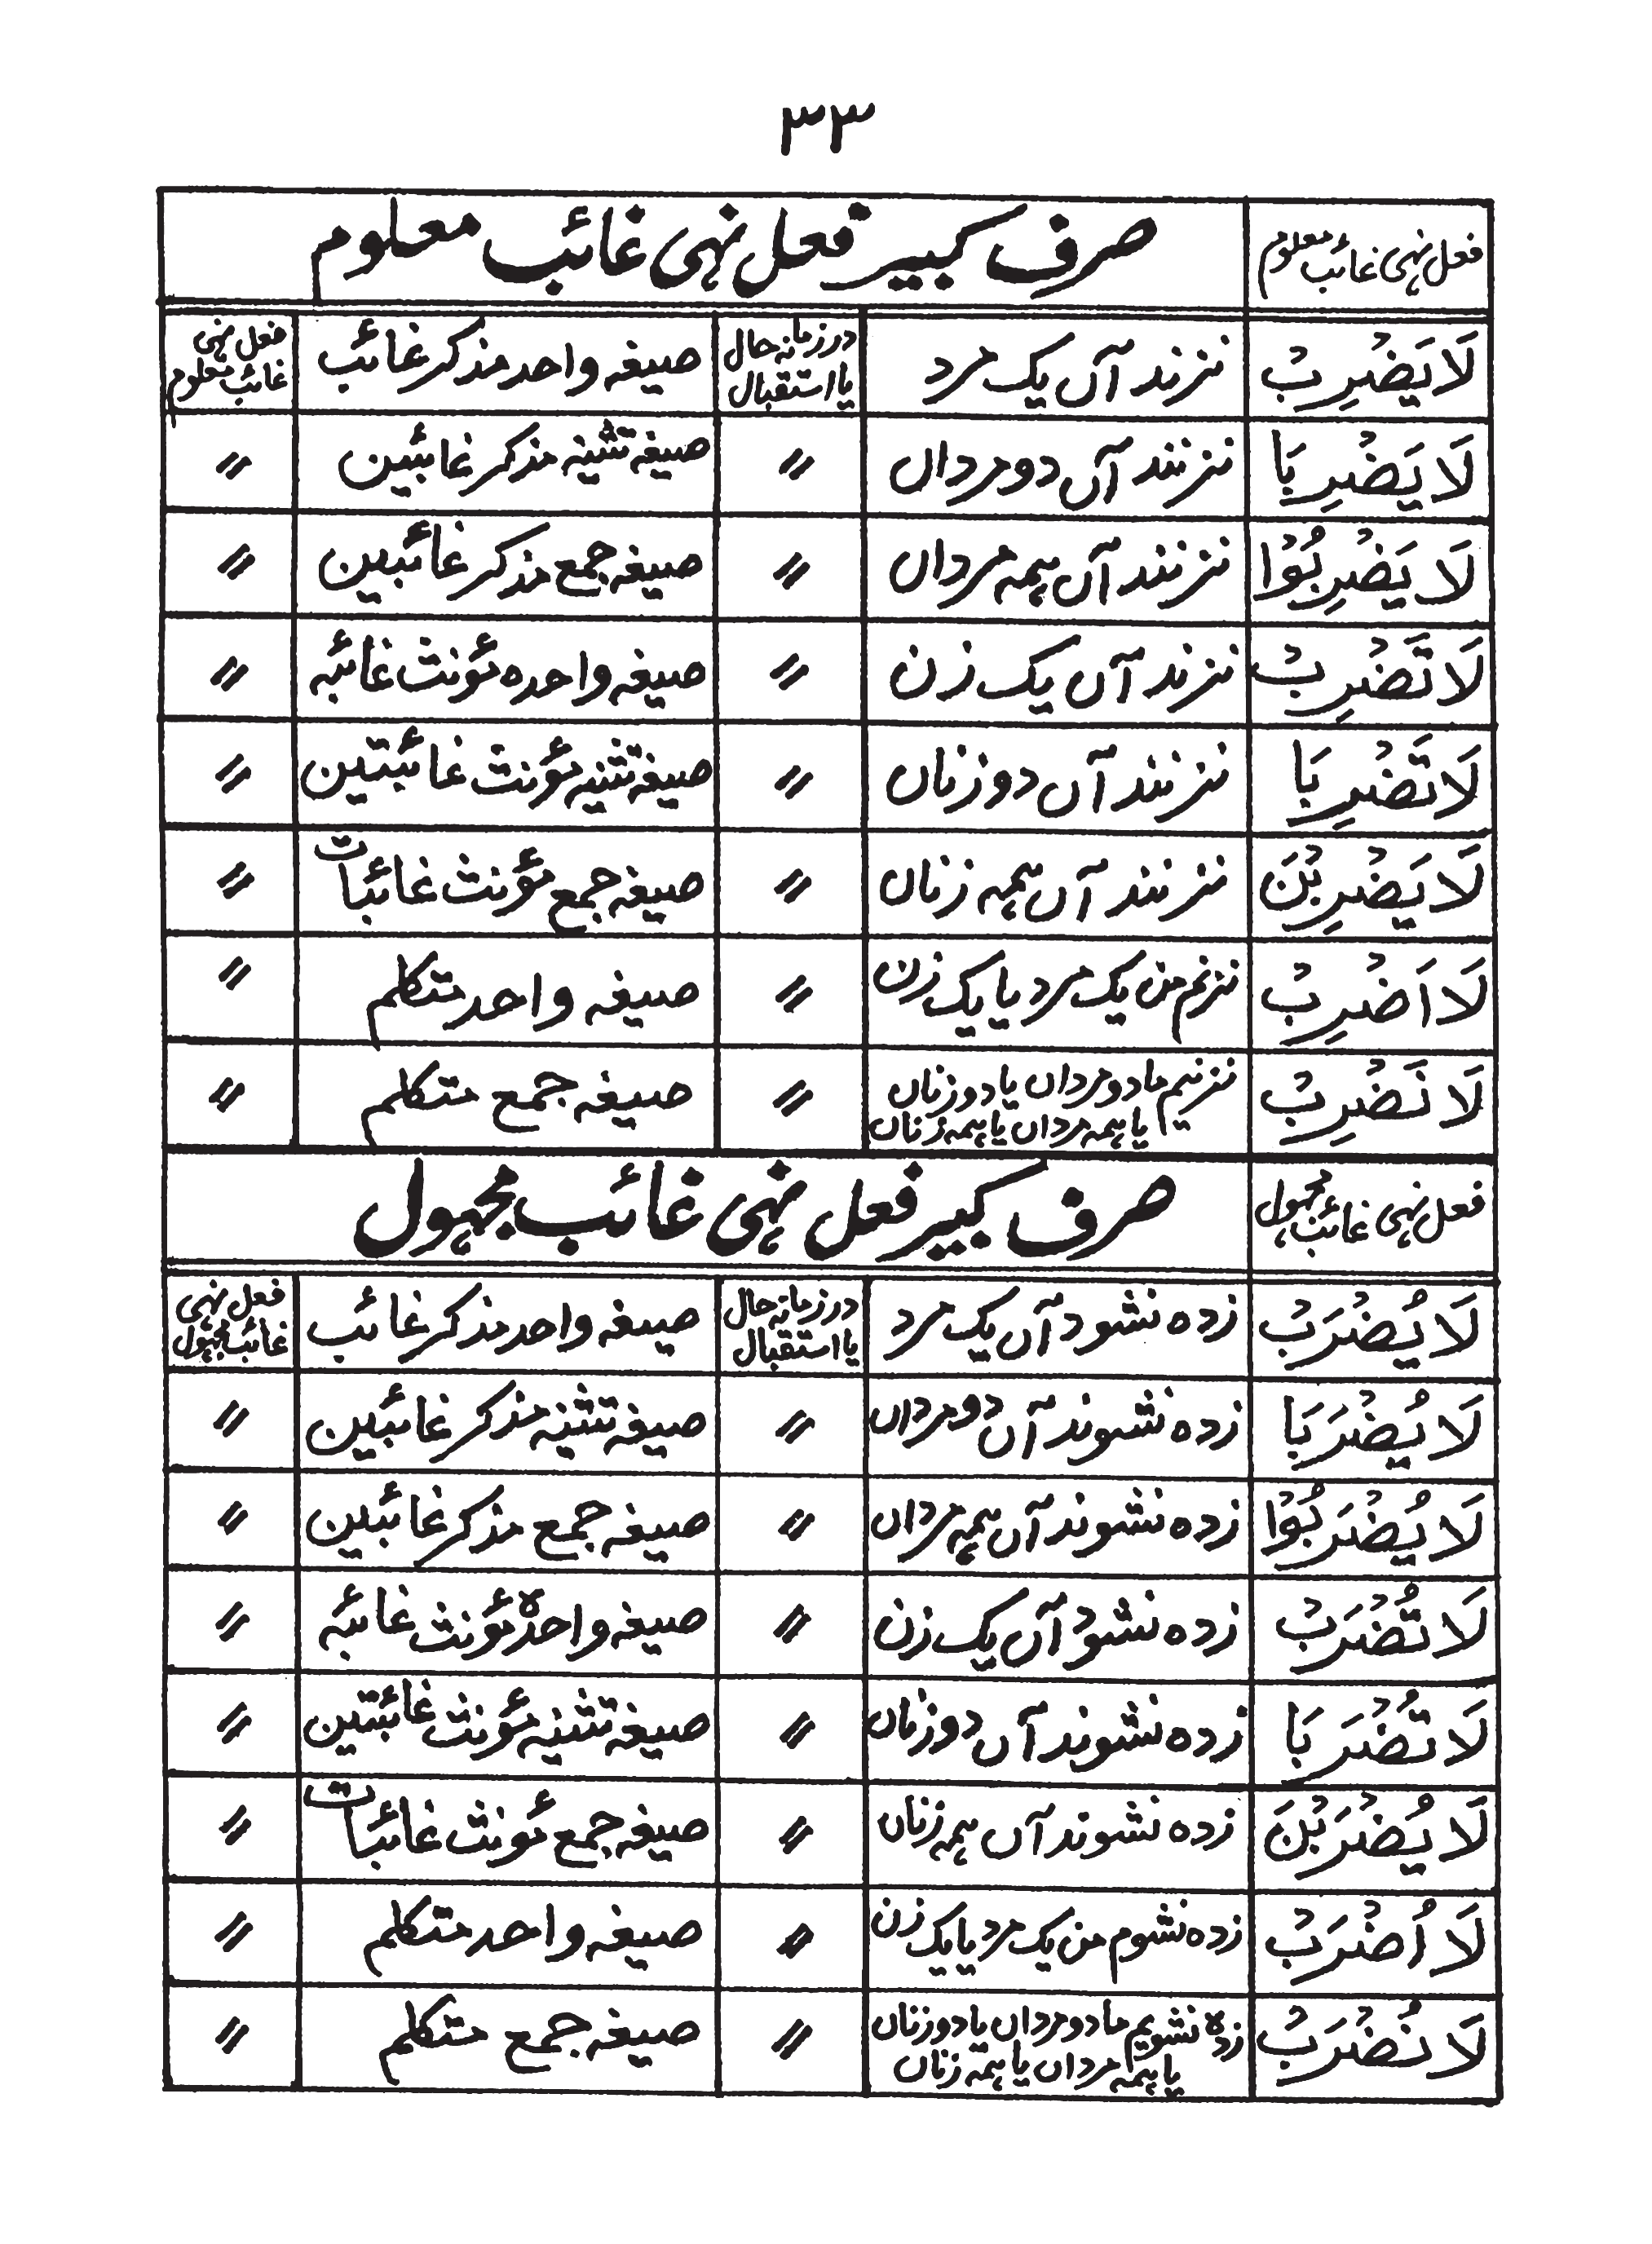 ۳۳
فعل نہی غائب معلوم صرف کبیر فعل نہی غائب معلوم
لَا يَضْرِبْ نزند آں یک مرد در زمانہ حال یا استقبال صیغہ واحد مذکر غائب فعل نہی غائب معلوم
لَا يَضْرِبَا نزنند آں دو مرداں 〃 صیغہ تثنیہ مذکر غائبین 〃
لَا يَضْرِبُوْا نزنند آں ہمہ مرداں 〃 صیغہ جمع مذکر غائبین 〃
لَا تَضْرِبْ نزند آں یک زن 〃 صیغہ واحدہ مؤنث غائبہ 〃
لَا تَضْرِبَا نزنند آں دو زناں 〃 صیغہ تثنیہ مؤنث غائبتین 〃
لَا يَضْرِبْنَ نزنند آں ہمہ زناں 〃 صیغہ جمع مؤنث غائبات 〃
لَا اَضْرِبْ نزنم من یک مرد یا یک زن 〃 صیغہ واحد متکلم 〃
لَا نَضْرِبْ نزنیم ما دو مرداں یا دو زناں یا ہمہ مرداں یا ہمہ زناں 〃 صیغہ جمع متکلم 〃
فعل نہی غائب مجہول صرف کبیر فعل نہی غائب مجہول
لَا يُضْرَبْ زدہ نشود آں یک مرد در زمانہ حال یا استقبال صیغہ واحد مذکر غائب فعل نہی غائب مجہول
لَا يُضْرَبَا زدہ نشوند آں دو مرداں 〃 صیغہ تثنیہ مذکر غائبین 〃
لَا يُضْرَبُوْا زدہ نشوند آں ہمہ مرداں 〃 صیغہ جمع مذکر غائبین 〃
لَا تُضْرَبْ زدہ نشود آں یک زن 〃 صیغہ واحدہ مؤنث غائبہ 〃
لَا تُضْرَبَا زدہ نشوند آں دو زناں 〃 صیغہ تثنیہ مؤنث غائبتین 〃
لَا يُضْرَبْنَ زدہ نشوند آں ہمہ زناں 〃 صیغہ جمع مؤنث غائبات 〃
لَا اُضْرَبْ زدہ نشوم من یک مرد یا یک زن 〃 صیغہ واحد متکلم 〃
لَا نُضْرَبْ زدہ نشویم ما دو مرداں یا دو زناں یا ہمہ مرداں یا ہمہ زناں 〃 صیغہ جمع متکلم 〃